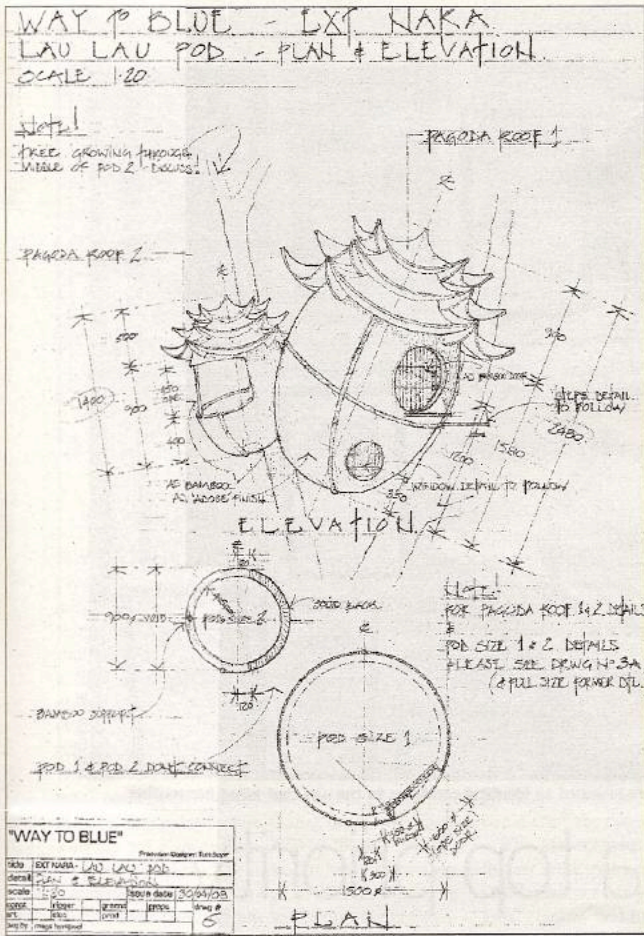 WAY TO BLUE - EXT NAKA
LAU LAU POD - PLAN & ELEVATION
SCALE 1:20
Note!
TREE GROWING THROUGH
MIDDLE OF POD 2 - DISCUSS!
PAGODA ROOF 1
PAGODA ROOF 2
1400
500
900
400
STEPS DETAIL
TO FOLLOW
2480
1580
1200
350
AS BAMBOO
AS 'ADOBE' FINISH
WINDOW DETAIL TO FOLLOW
ELEVATION
POD SIZE 2
SOLID BACK
120
BAMBOO SUPPORT
POD 1 & POD 2 DON'T CONNECT
Note!
FOR PAGODA ROOF 1&2 DETAILS
&
POD SIZE 1 & 2 DETAILS
PLEASE SEE DRWG Nº 3A
(& FULL SIZE FORMER DTL.
POD SIZE 1
300
1500 ø
PLAN
"WAY TO BLUE"
Production Designer:
EXT NAKA - LAU LAU POD
detail PLAN & ELEVATION
scale 1:20 issue date 30/04/09
const rigger greens props drwg #
art elec prod 6